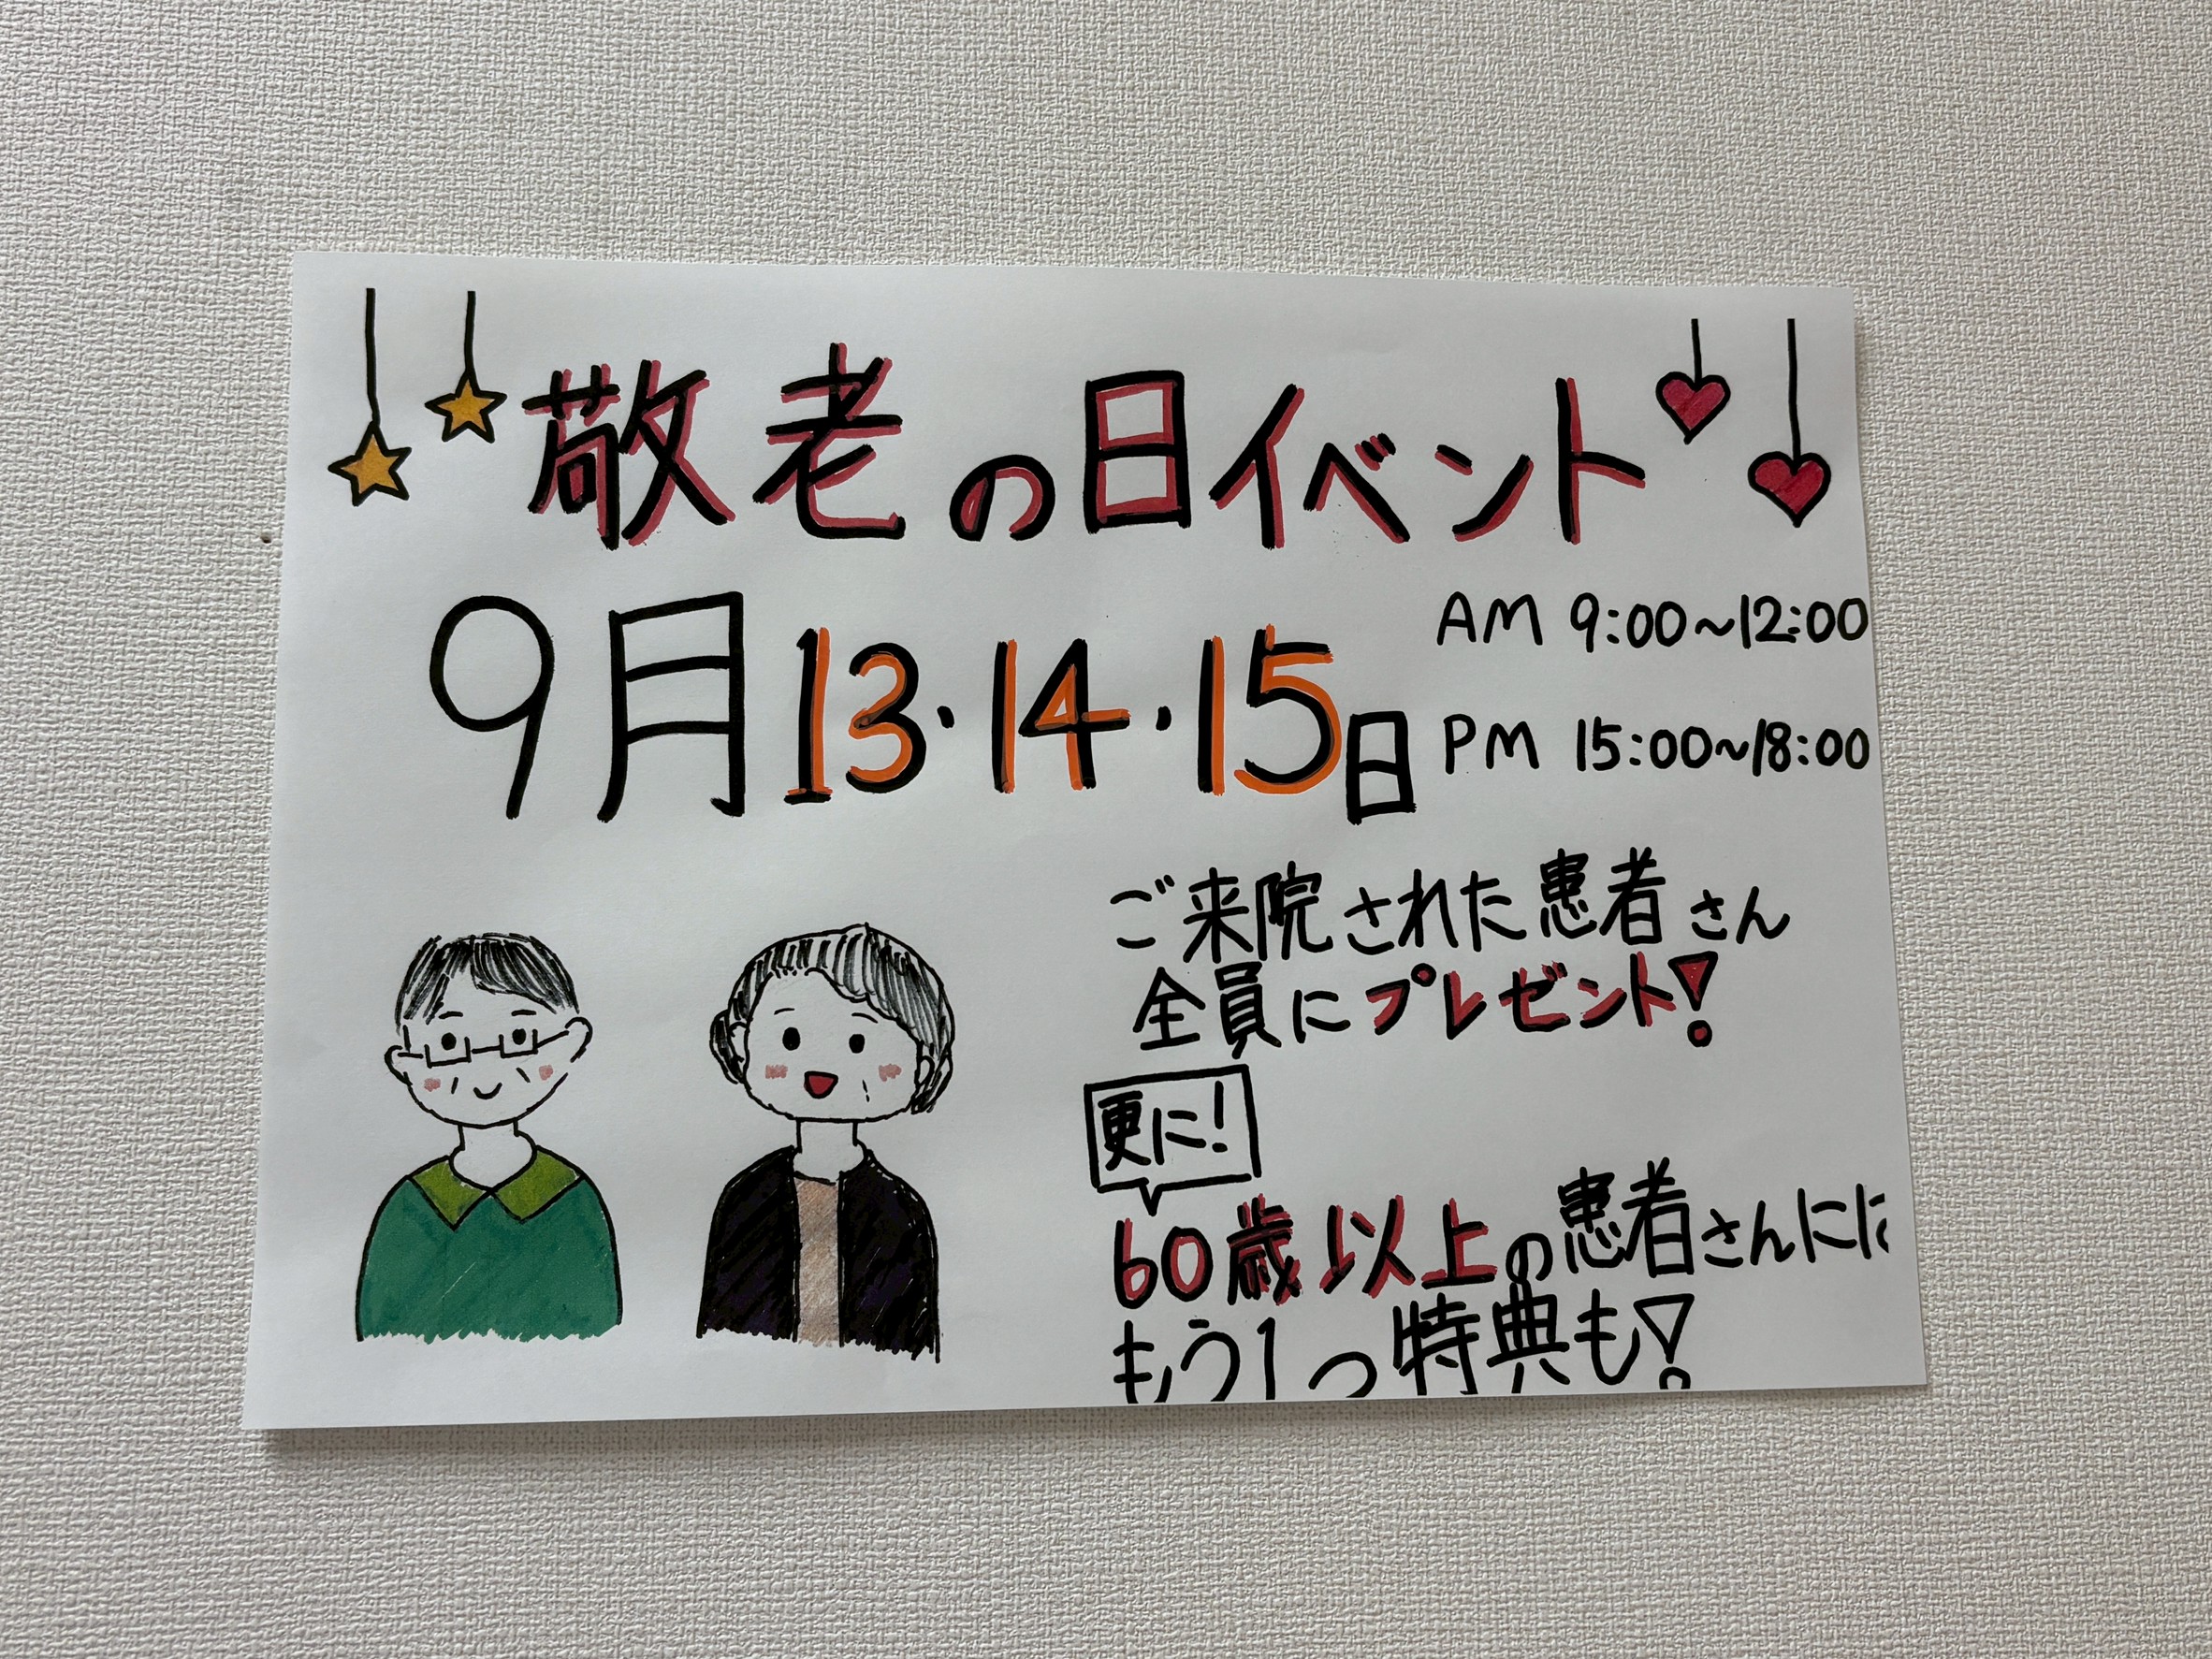 敬老の日イベント
9月13・14・15日
AM 9:00~12:00
PM 15:00~18:00
ご来院された患者さん
全員にプレゼント!
更に!
60歳以上の患者さんに
もう1つ特典も!